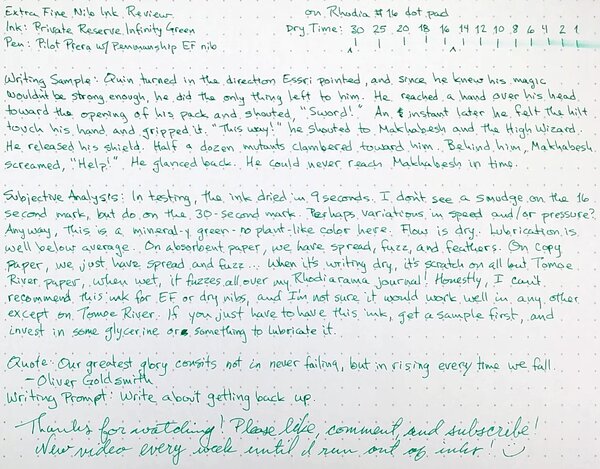 Extra Fine Nib Ink Review on Rhodia #16 dot pad
Ink: Private Reserve Infinity Green Dry Time: 30 25 20 18 16 14 12 10 8 6 4 2 1
Pen: Pilot Prera w/ Penmanship EF nib
Writing Sample: Quin turned in the direction Essri pointed, and since he knew his magic
wouldn't be strong enough, he did the only thing left to him. He reached a hand over his head
toward the opening of his pack and shouted, "Sword!" An instant later he felt the hilt
touch his hand and gripped it. "This way!" he shouted to Makhabesh and the High Wizard.
He released his shield. Half a dozen mutants clambered toward him. Behind him, Makhabesh
screamed, "Help!" He glanced back. He could never reach Makhabesh in time.
Subjective Analysis: In testing, the ink dried in 9 seconds. I don't see a smudge on the 16
second mark, but do on the 30-second mark. Perhaps variations in speed and/or pressure?
Anyway, this is a mineral-y green - no plant-like color here. Flow is dry. Lubrication is
well below average. On absorbent paper, we have spread, fuzz, and feathers. On copy
paper, we just have spread and fuzz... When it's writing dry, it's scratch on all but Tomoe
River paper, when wet, it fuzzes all over my Rhodiarama journal! Honestly, I can't
recommend this ink for EF or dry nibs, and I'm not sure it would work well in any other
except on Tomoe River. If you just have to have this ink, get a sample first, and
invest in some glycerine or something to lubricate it.
Quote: Our greatest glory consits not in never failing, but in rising every time we fall.
- Oliver Goldsmith
Writing Prompt: Write about getting back up.
Thanks for watching! Please like, comment, and subscribe!
New video every week until I run out of inks!